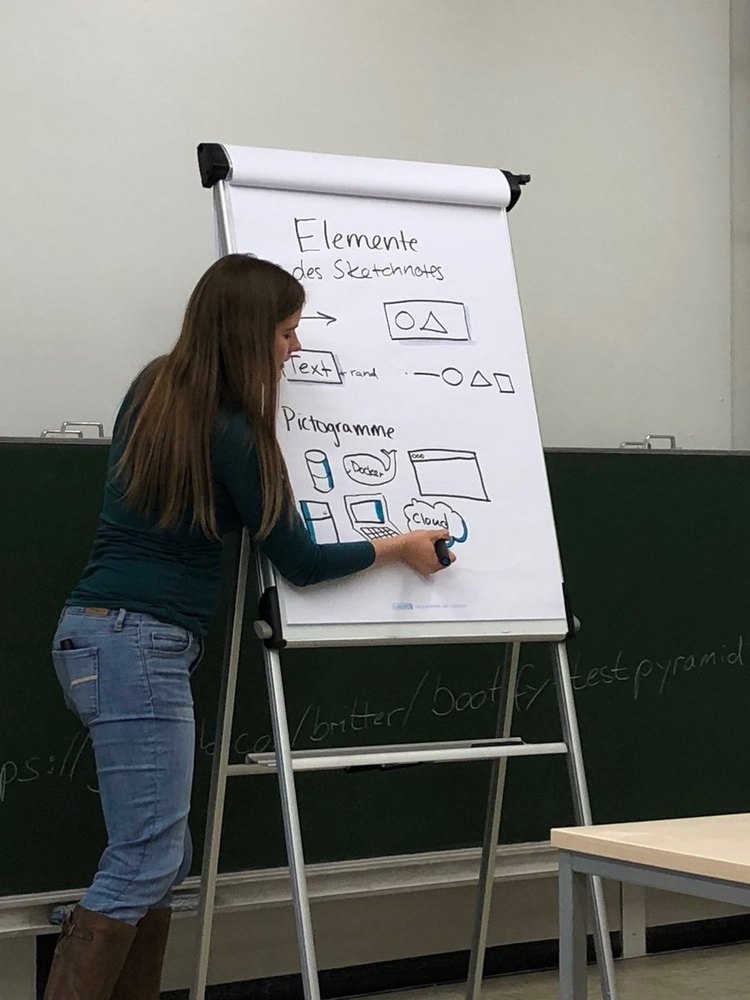 Elemente
des Sketchnotes
Text + rand
Pictogramme
Docker
Cloud
/britter/bootify-testpyramid